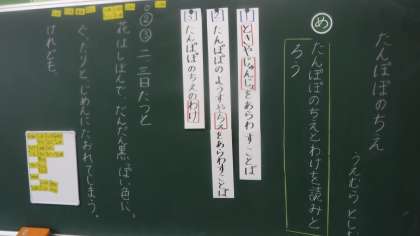 たんぽぽのちえ
うえむら としお
め
たんぽぽのちえとわけを読みと
ろう
1 ときやじゅんじょをあらわすことば
2 たんぽぽのようすやちえをあらわすことば
3 たんぽぽのちえのわけ
②③ 二、三日たつと
花はしぼんで、だんだん黒っぽい色に。
ぐったりと、じめんにたおれてしまう。
けれども、